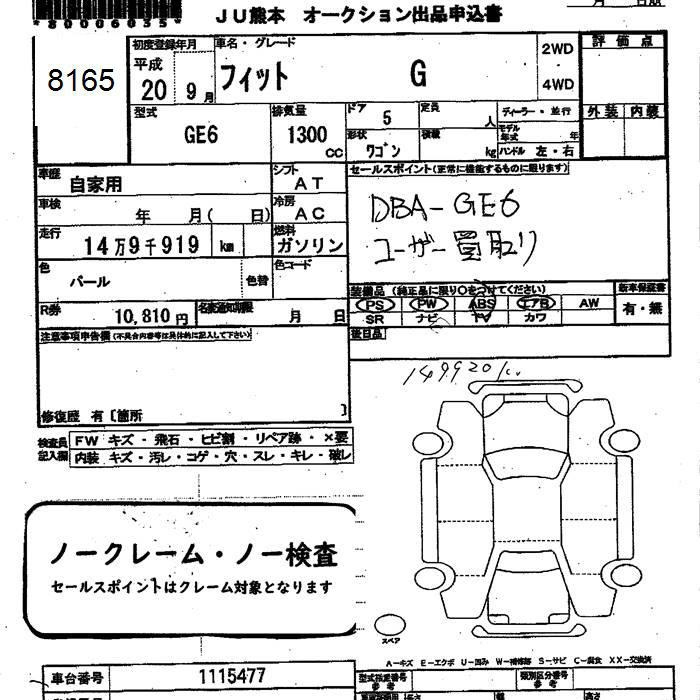 *80006035*
月 日
JU熊本 オークション出品申込書
8165
初度登録年月
平成
20 9月
車名・グレード
フィット G
2WD
4WD
評価点
外装 内装
型式
GE6
排気量
1300
cc
ドア
5
定員
人
形状
ワゴン
積載
kg
ディーラー・並行
モデル年式 年
ハンドル 左・右
車歴
自家用
シフト
AT
車検
年 月( 日)
冷房
AC
走行
14万9千919 km
燃料
ガソリン
色
パール
色替
色コード
R券
10,810円
名変通知期限
月 日
セールスポイント(正常に機能するものに限ります)
DBA-GE6
ユーザー買取り
装備品 (純正品に限り○をつけてください)
PS PW ABS エアB AW
SR ナビ TV カワ
新車保証書
有・無
後日品
注意事項申告欄(不具合内容等は具体的に記入して下さい)
修復歴 有〔箇所 〕
149920k
検査員記入欄
FW キズ・飛石・ヒビ割・リペア跡・×要
内装 キズ・汚レ・コゲ・穴・スレ・キレ・破レ
ノークレーム・ノー検査
セールスポイントはクレーム対象となります
スペア
A-キズ E-エクボ U-凹み W-補修跡 S-サビ C-腐食 XX-交換済
車台番号
1115477
型式指定番号
参考
類別区分番号
参考
長さ
幅
高さ